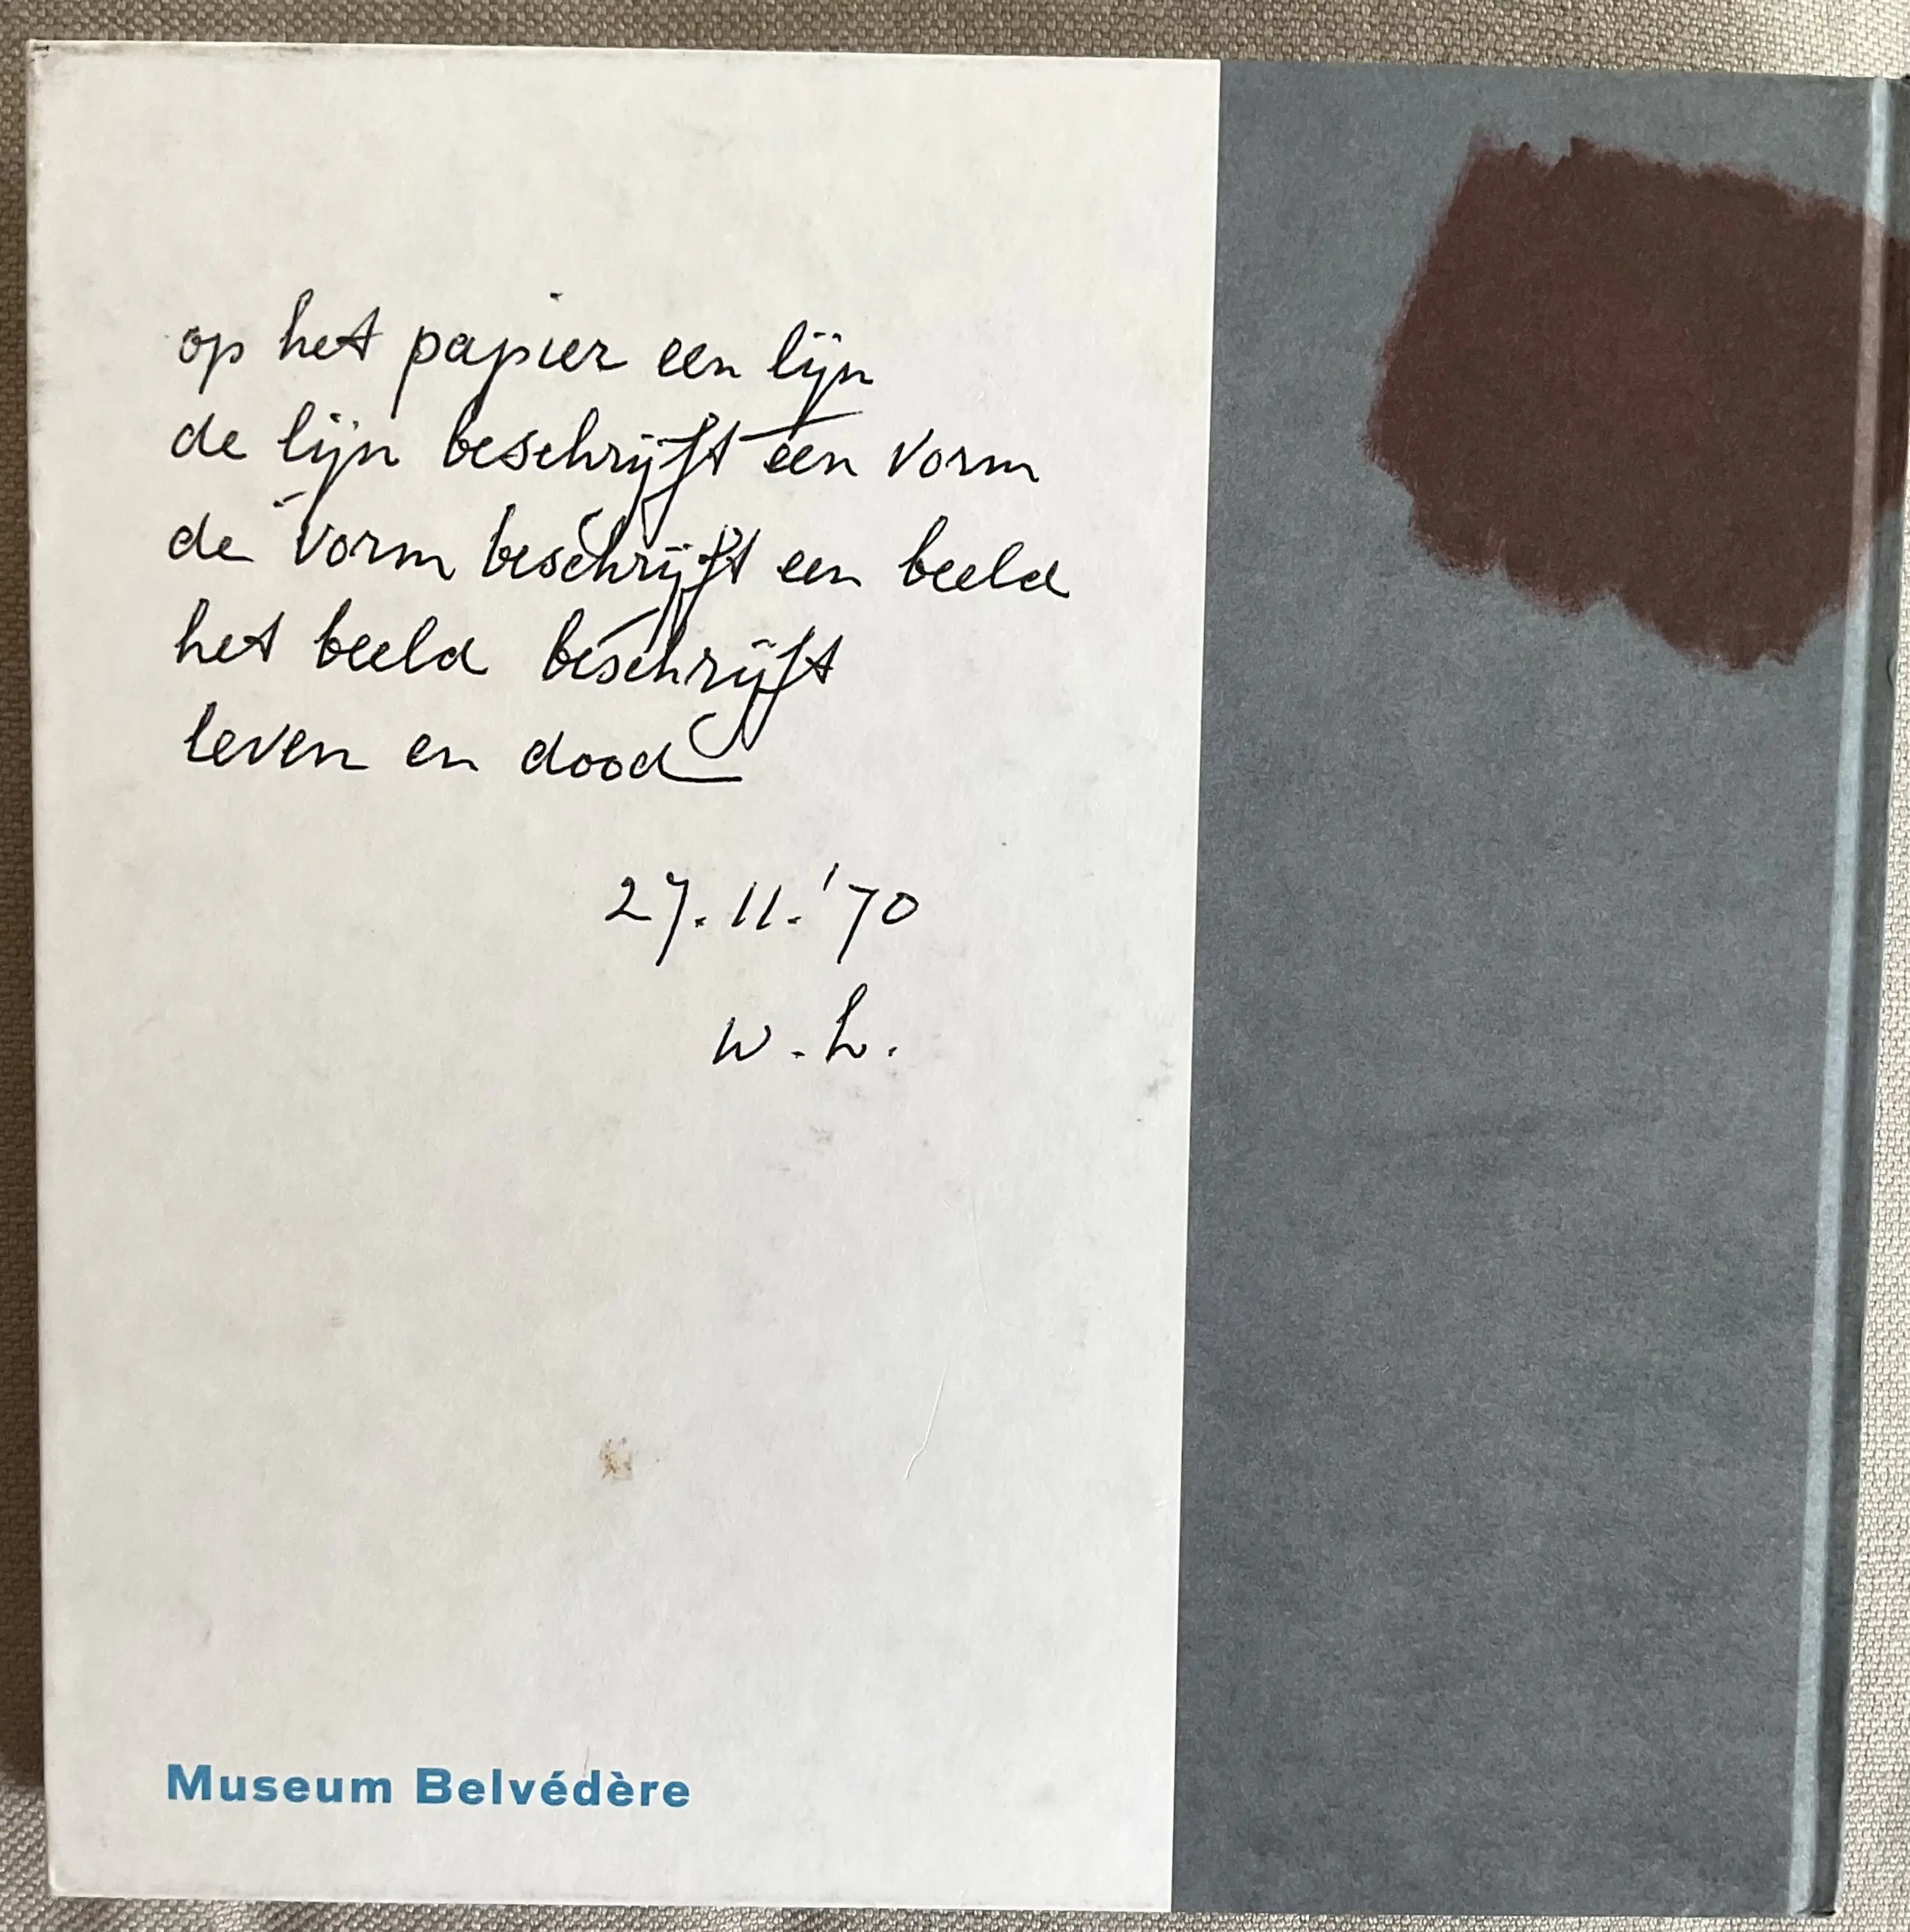 op het papier een lijn
de lijn beschrijft een vorm
de vorm beschrijft een beeld
het beeld beschrijft
leven en dood
27.11.'70
w.h.
Museum Belvédère